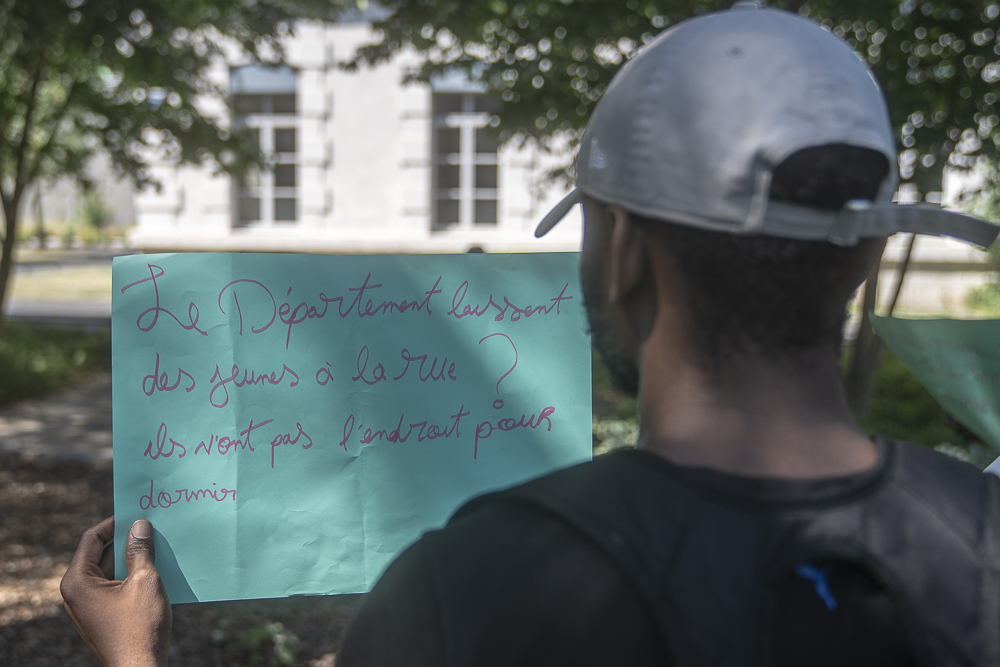 Le Département laissent
des jeunes à la rue ?
ils n'ont pas l'endroit pour
dormir